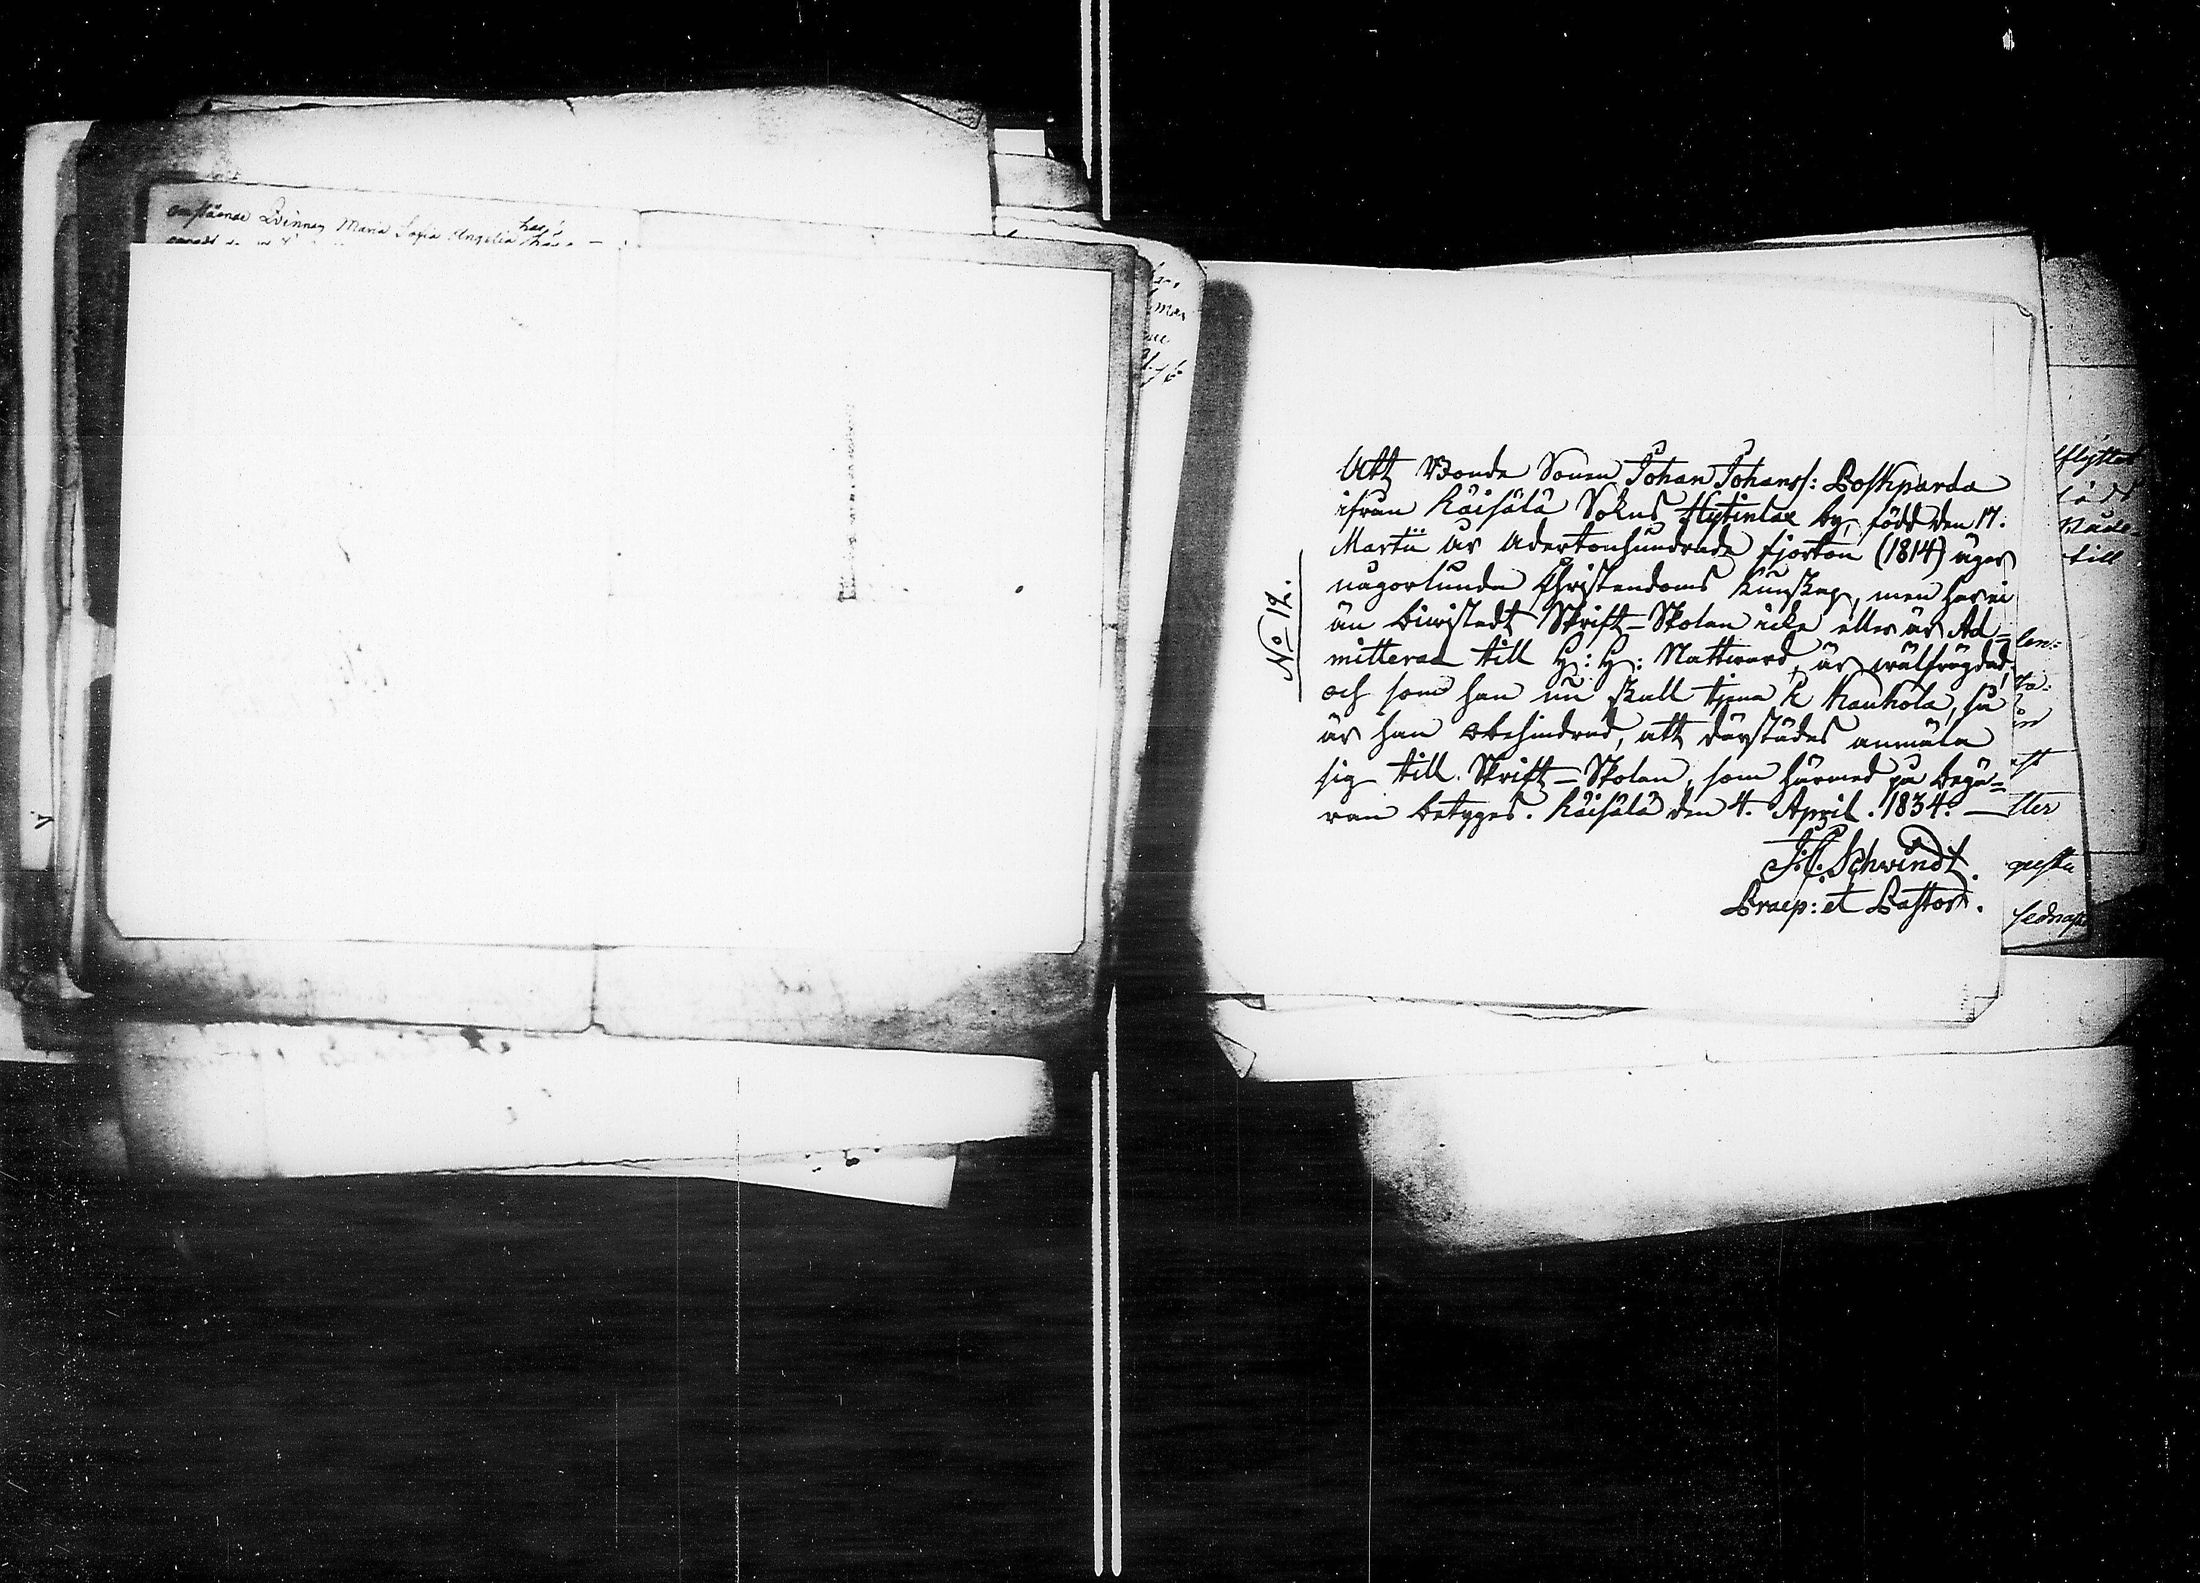 omstående Qvinnan Maria Sofia Angelia har
N:o 12.
Att Bonde Sonen Johan Johanss: Poskparda
ifrån Räisälä Sokns Hytinlax by, född den 17.
Martii år Adertonhundrade fjorton (1814) äger
någorlunda Christendoms kunskap, men har ei
än biwistadt Skrift-Skolan icke eller är Ad=
mitterad till H: H: Nattward, är wälfrägdad,
och som han nu skall tjena i Kaukola, så
är han obehindrad, att därstädes anmäla
sig till Skrift-Skolan, som härmed på begä=
ran betyges. Räisälä den 4. April. 1834. —
J: C: Schwindt.
Praep: et Pastor.
till